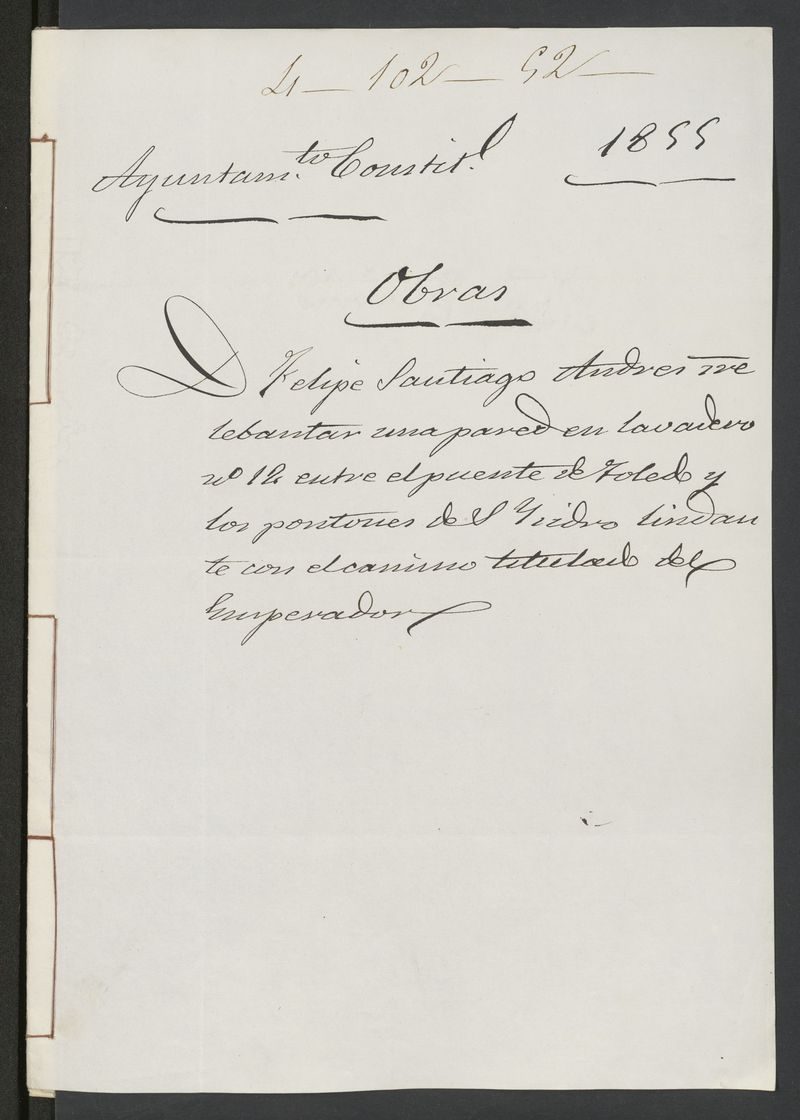 4-102-52
Ayuntam.to Constit.l 1855
Obras
D Felipe Santiago Andres sre
lebantar una pared en lavadero
nº 12 entre el puente de Toledo y
los pontones de S Ysidro lindan
te con el camino titulado del
Emperador